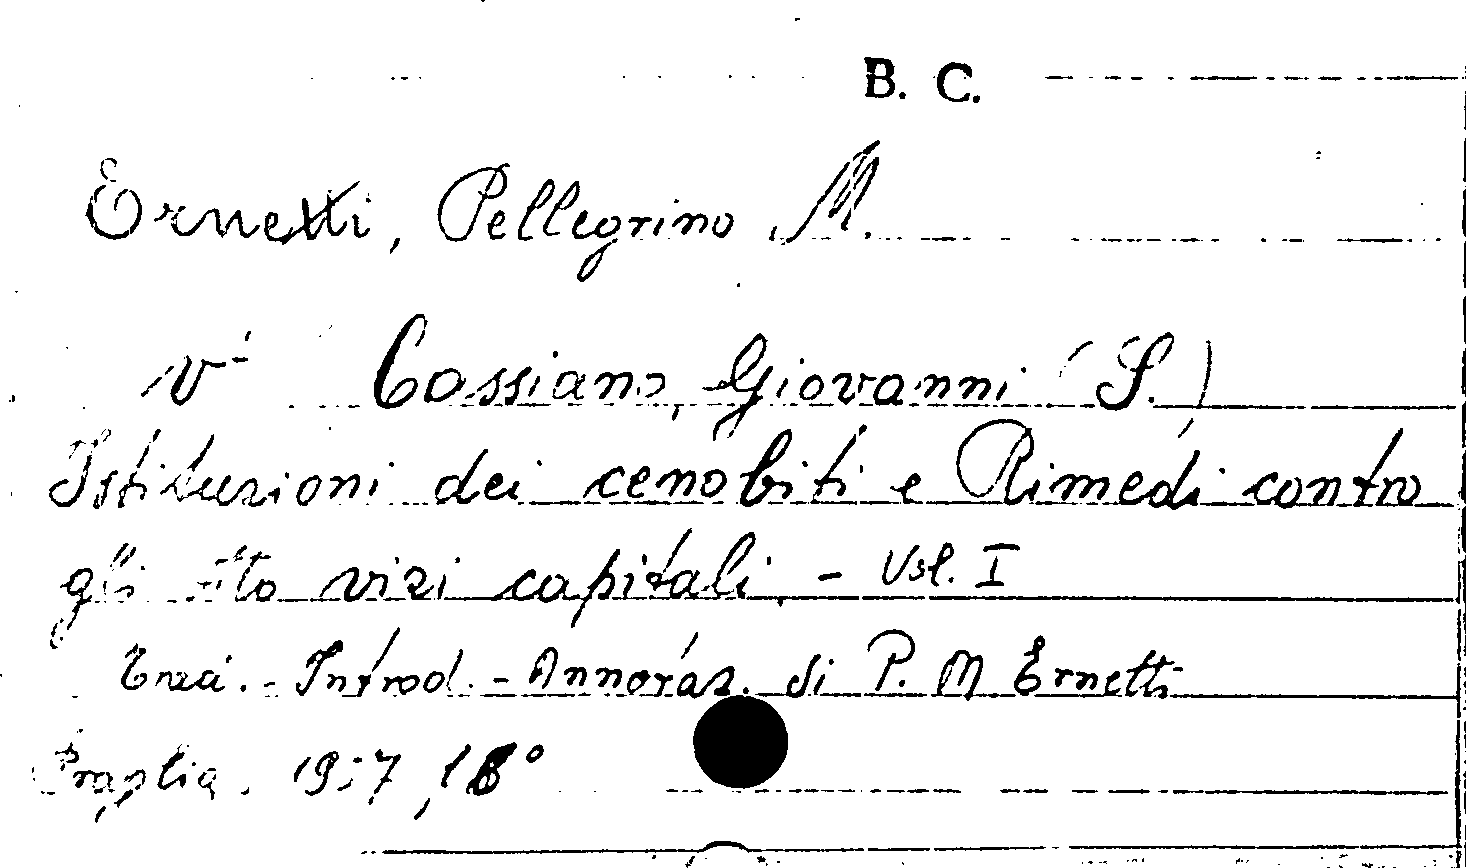 B. C.
Ernetti, Pellegrino M.
V. Cassiano, Giovanni (S.)
Istituzioni dei cenobiti e Rimedi contro
gli otto vizi capitali. - Vol. I
Introd. - Annotaz. di P. M Ernetti
Praglia. 1957, 18°